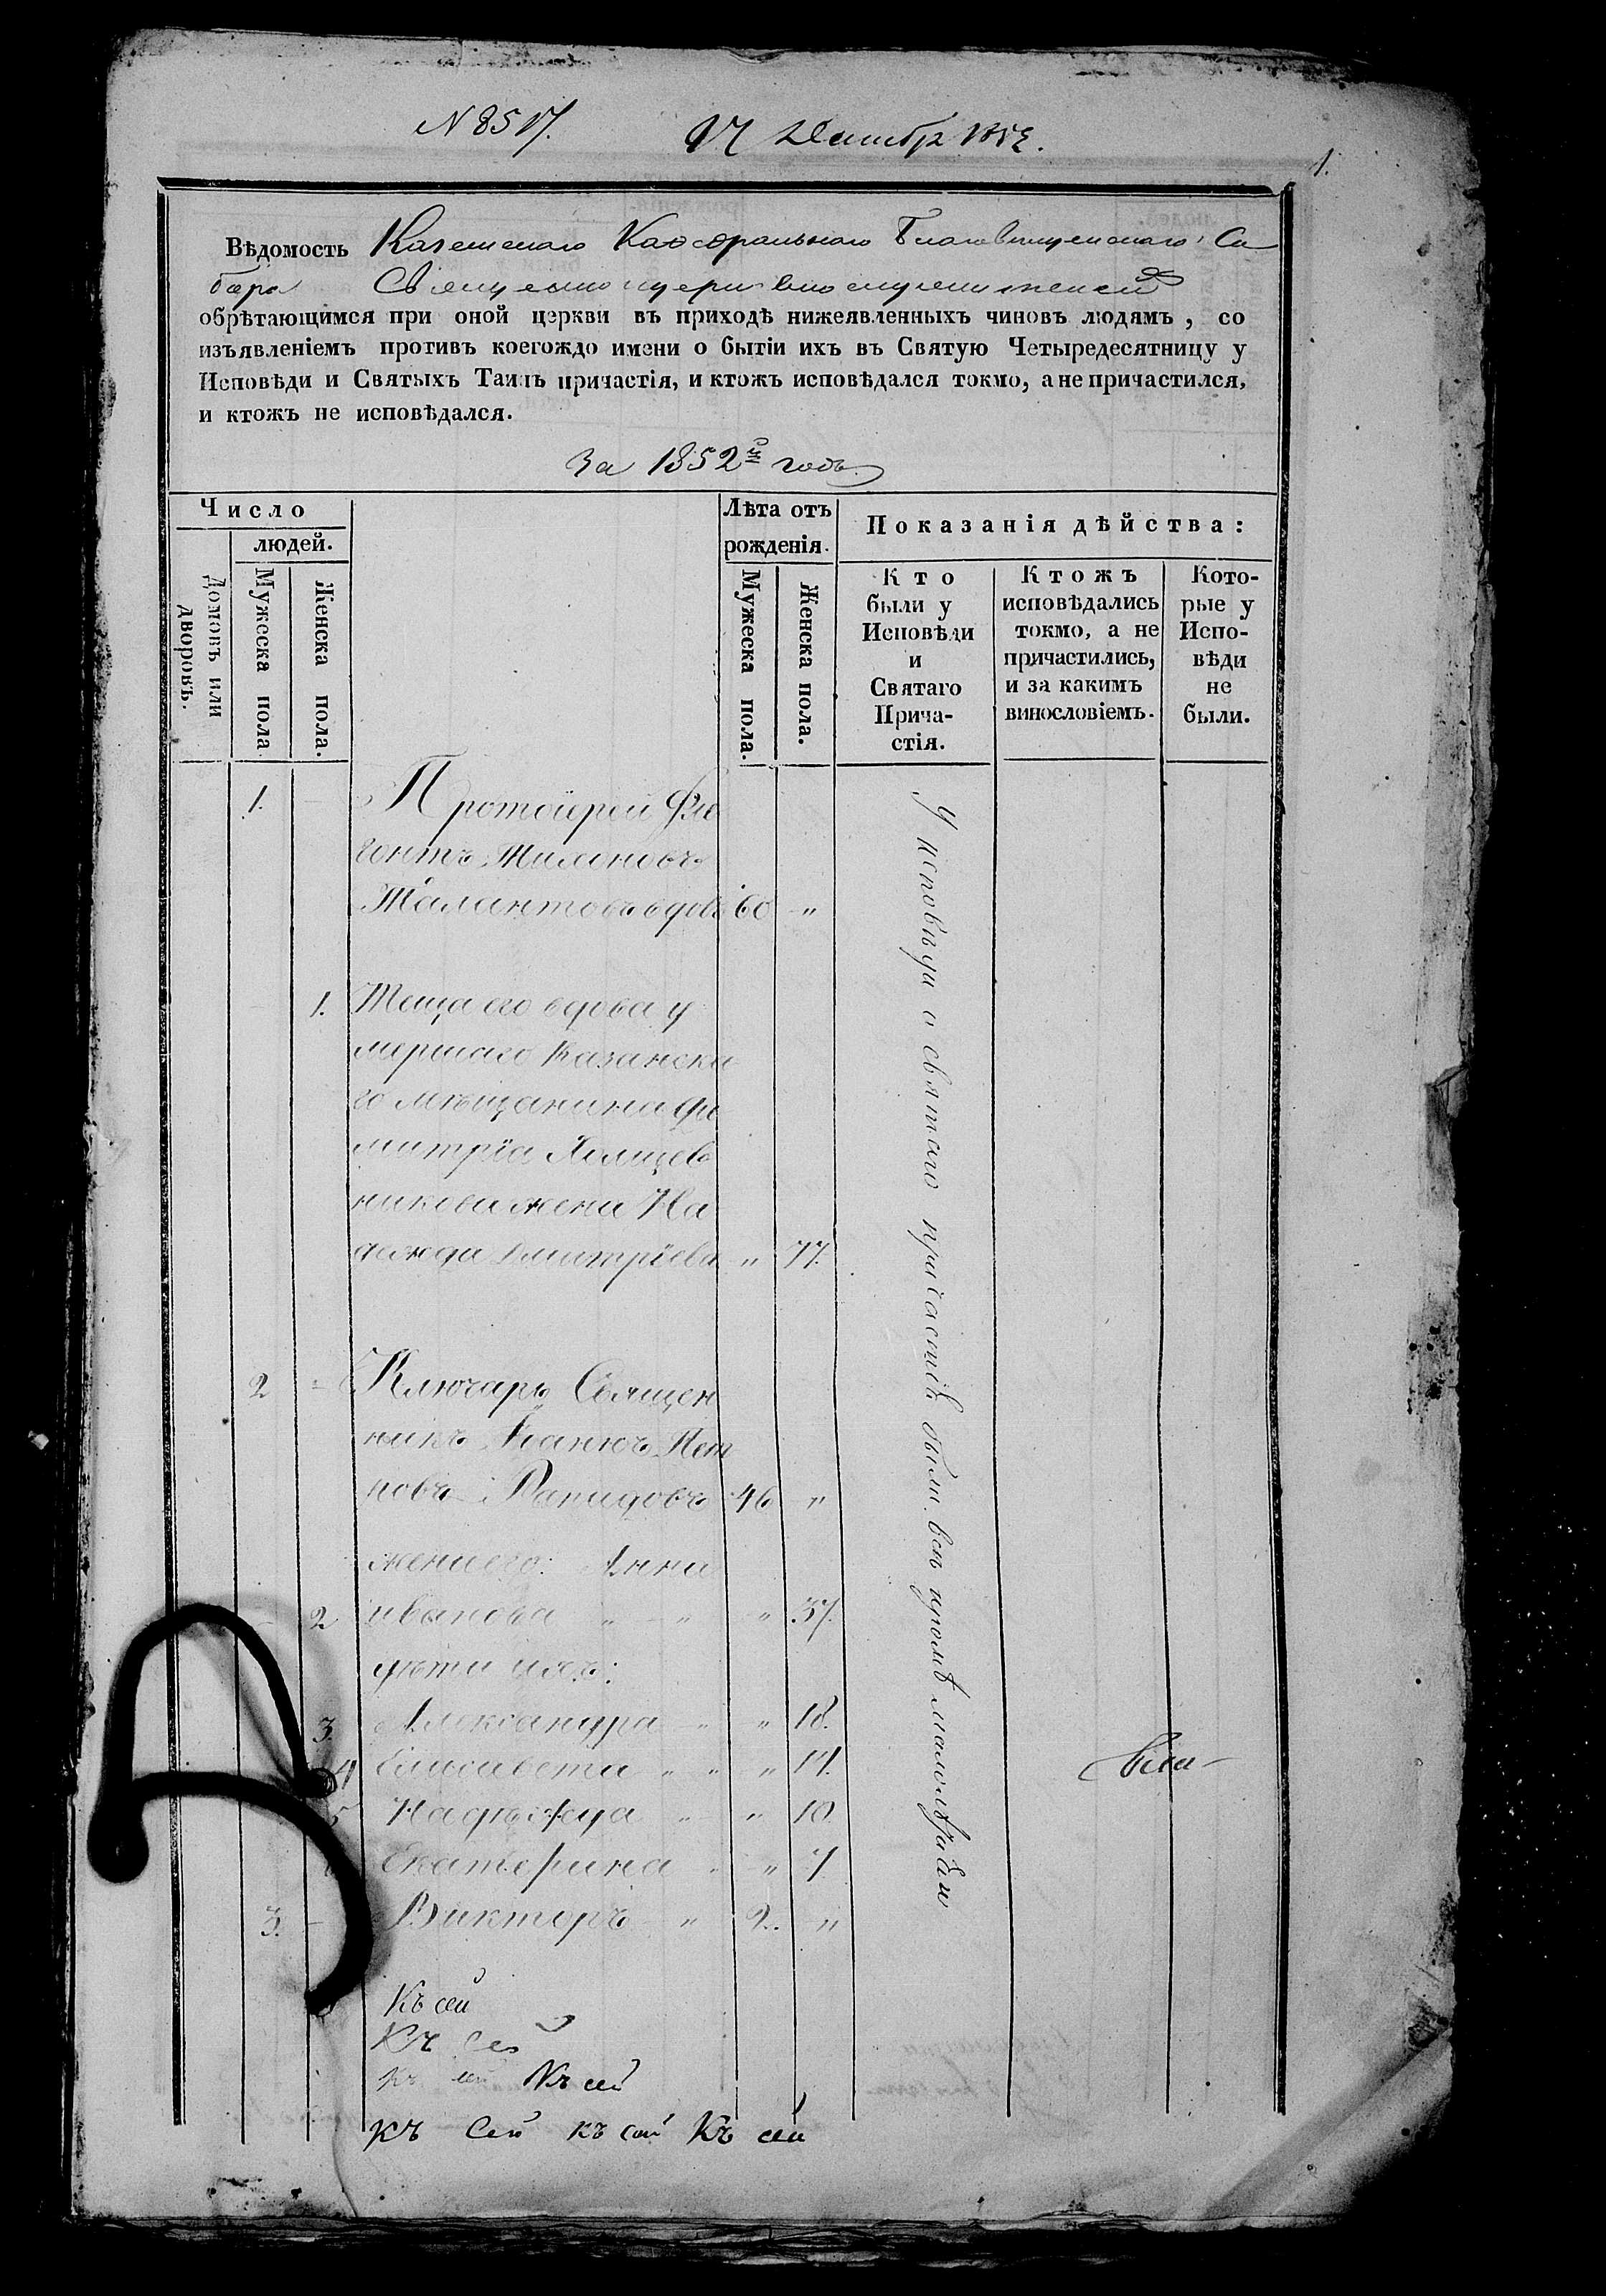 N 8517. 17 Декабр 1852.
1.
Вѣдомость Казанскаго Каѳедральнаго Благовѣщенскаго Со
бора Священно церковно служителей
обрѣтающимся при оной церкви въ приходѣ нижеявленныхъ чиновъ людямъ, со
изъявленіемъ противъ коегождо имени о бытіи ихъ въ Святую Четыредесятницу у
Исповѣди и Святыхъ Таинъ причастія, и ктожъ исповѣдался токмо, а не причастился,
и ктожъ не исповѣдался.
За 1852й годъ
Число
людей.
Домовъ или дворовъ.
Мужеска пола
Женска пола.
Лѣта отъ
рожденія.
Мужеска пола.
Женска пола.
Показанія дѣйства:
Кто
были у
Исповѣди
и
Святаго
Прича-
стія.
Ктожъ
исповѣдались
токмо, а не
причастились,
и за какимъ
винословіемъ.
Кото-
рые у
Испо-
вѣди
не
были.
1. Протоіерей Фле
гонтъ
Талантовъ вдовъ 60 "
1. Теща его вдова у
мершаго Казанска
го мѣщанина Ди
митрія
никова жена На
дежда Димитріева " 77.
2 Ключарь Священ
никъ Іоаннъ
новъ 46 "
жена его: Анна
2 Иванова " " " 37.
дѣти ихъ:
3. Александра " " 18.
4 Елисавета " " " 14.
5 Надѣжда " " 10.
Екатерина " " 7
3. Викторъ " 2. "
У исповѣди и святаго причастія были всѣ кромѣ
Къ сей
Къ Сей
къ сей Къ сей
къ Сей къ сей Къ сей